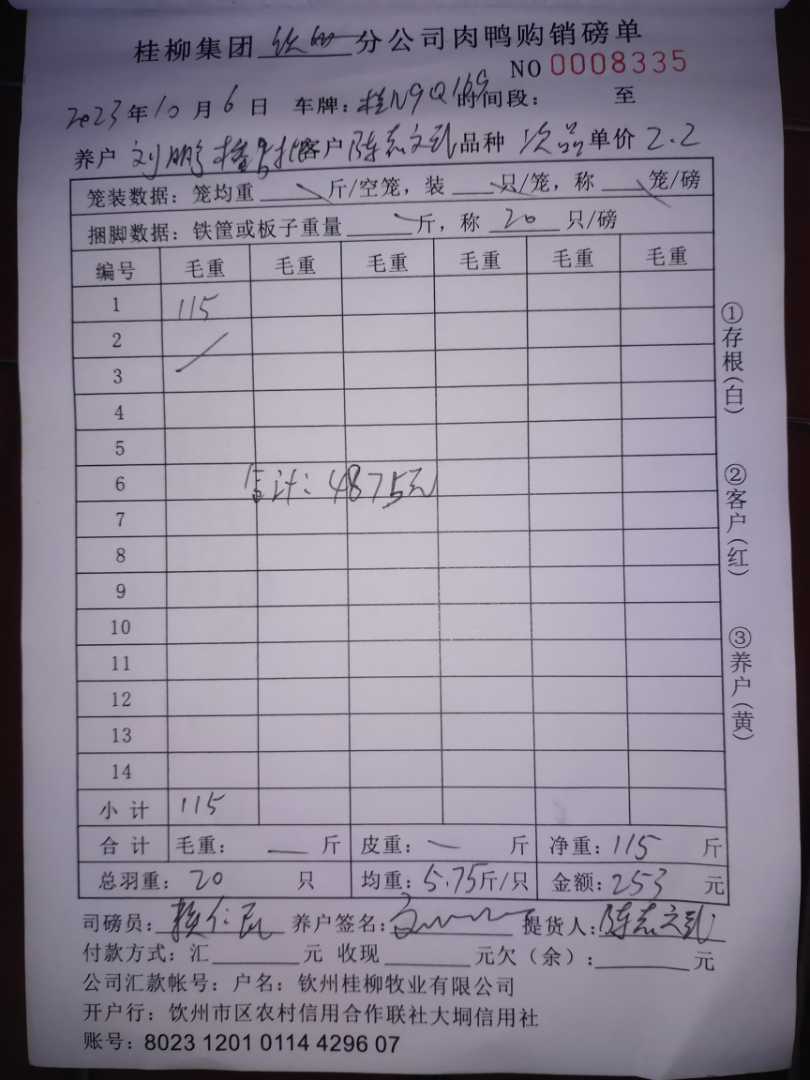 桂柳集团 钦州 分公司肉鸭购销磅单
NO 0008335
2023年10月6日 车牌：桂N9Q169 时间段： 至
养户 刘鹏 客户 陈志文 品种 次品 单价 2.2
笼装数据：笼均重 斤/空笼，装 只/笼，称 笼/磅
捆脚数据：铁筐或板子重量 斤，称 20 只/磅
编号 毛重 毛重 毛重 毛重 毛重 毛重
1 115
2
3
4
5
6 合计：4875元
7
8
9
10
11
12
13
14
小计 115
合计 毛重： — 斤 皮重： — 斤 净重：115 斤
总羽重：20 只 均重：5.75斤/只 金额：253 元
司磅员： 养户签名： 提货人：陈志文
付款方式：汇 元 收现 元欠（余）： 元
公司汇款帐号：户名：钦州桂柳牧业有限公司
开户行：钦州市区农村信用合作联社大垌信用社
账号：8023 1201 0114 4296 07
①存根（白）
②客户（红）
③养户（黄）